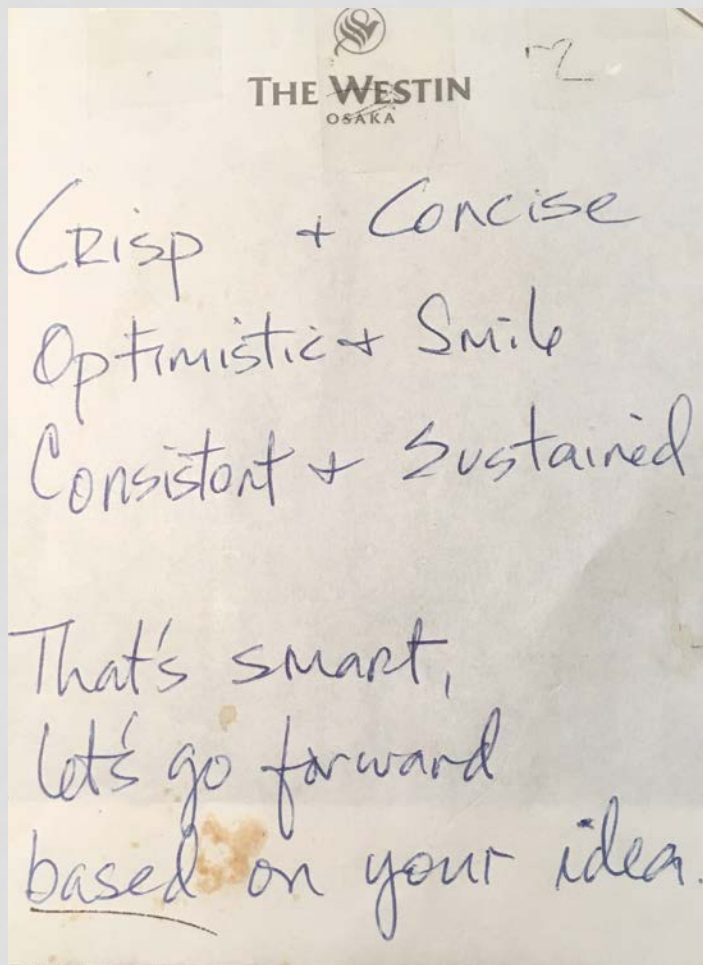 THE WESTIN
OSAKA
Crisp + Concise
Optimistic + Smile
Consistent + Sustained
That's smart,
let's go forward
based on your idea.